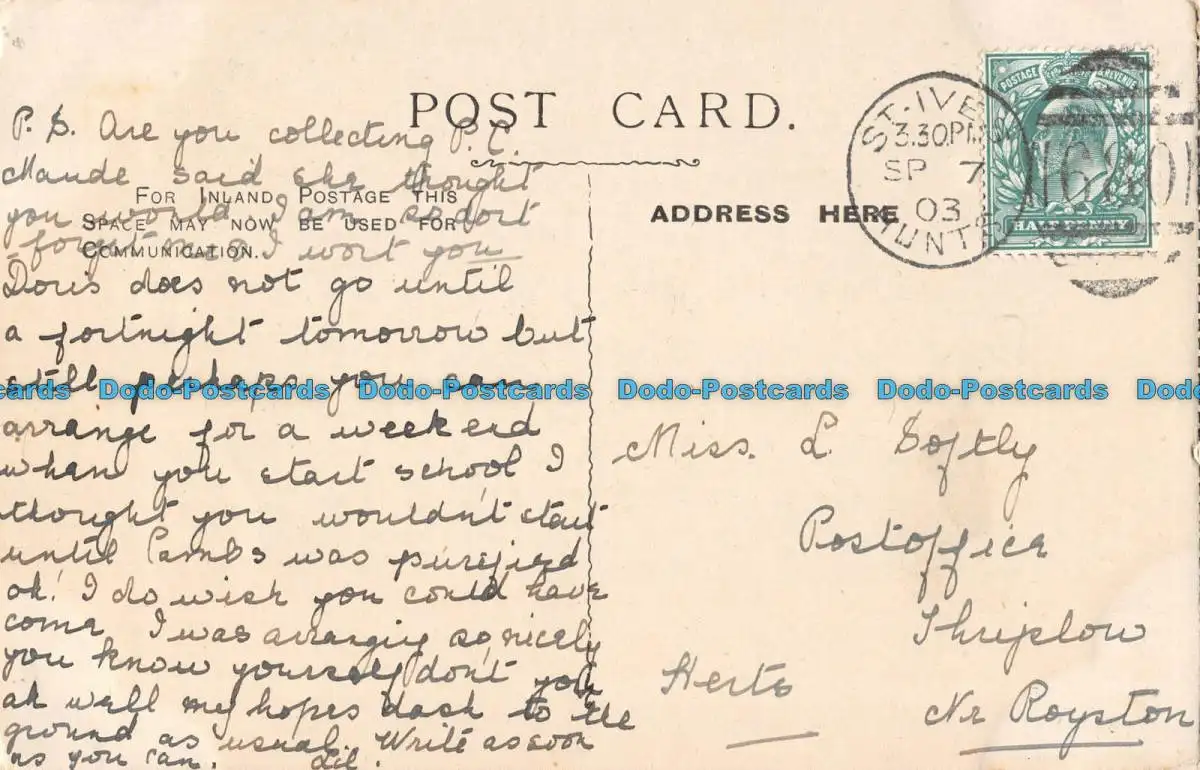 POST CARD.
P.S. Are you collecting P.C.
Maude said she thought
you would I am so don't
forget me & I wont you
FOR INLAND POSTAGE THIS
SPACE MAY NOW BE USED FOR
COMMUNICATION.
Doris does not go until
a fortnight tomorrow but
still perhaps you can
arrange for a weekend
when you start school I
thought you wouldn't start
until Cambs was purified
oh! I do wish you could have
come I was arranging so nicely
you know yourself don't you
ah well my hopes dash to the
ground as usual. Write as soon
as you can. Lil.
ADDRESS HERE
Miss. L. Softly
Postoffice
Thriplow
Nr Royston
Herts
ST. IVES
3.30PM
SP 7
03
HUNTS
POSTAGE REVENUE
HALFPENNY
Dodo-Postcards Dodo-Postcards Dodo-Postcards Dodo-Postcards